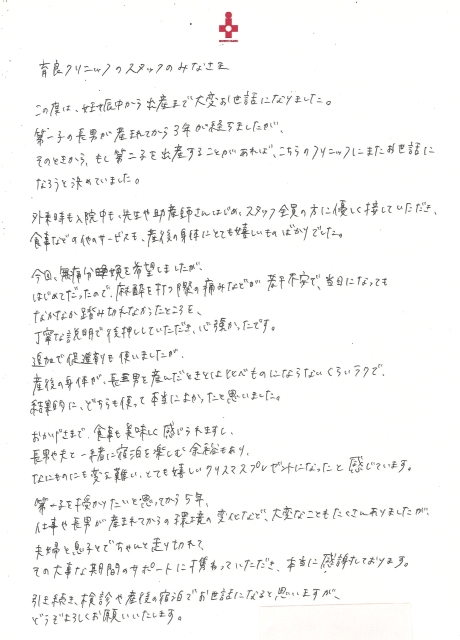 育良クリニックのスタッフのみなさま
この度は、妊娠中から出産まで大変お世話になりました。
第一子の長男が産まれてから3年が経ちましたが、
そのときから、もし第二子を出産することがあれば、こちらのクリニックにまたお世話に
なろうと決めていました。
外来時も入院中も、先生や助産師さんはじめ、スタッフ全員の方に優しく接していただき、
食事などの他のサービスも、産後の身体にとても嬉しいものばかりでした。
今回、無痛分娩を希望しましたが、
はじめてだったので、麻酔を打つ際の痛みなどが若干不安で、当日になっても
なかなか踏み切れなかったところを、
丁寧な説明で後押ししていただき、心強かったです。
追加で促進剤も使いましたが、
産後の身体が、長男を産んだときとはくらべものにならないくらいラクで、
結果的に、どちらも使って本当によかったと思いました。
おかげさまで、食事も美味しく感じられますし、
長男や夫と一緒に宿泊を楽しむ余裕もあり、
なにものにも変え難い、とても嬉しいクリスマスプレゼントになったと感じています。
第一子を授かりたいと思ってから5年、
仕事や長男が産まれてからの環境の変化など、大変なこともたくさんありましたが、
夫婦と息子とでちゃんと走り切れて、
その大事な期間のサポートに携わっていただき、本当に感謝しております。
引き続き、検診や産後の宿泊でお世話になると思いますが、
どうぞよろしくお願いいたします。